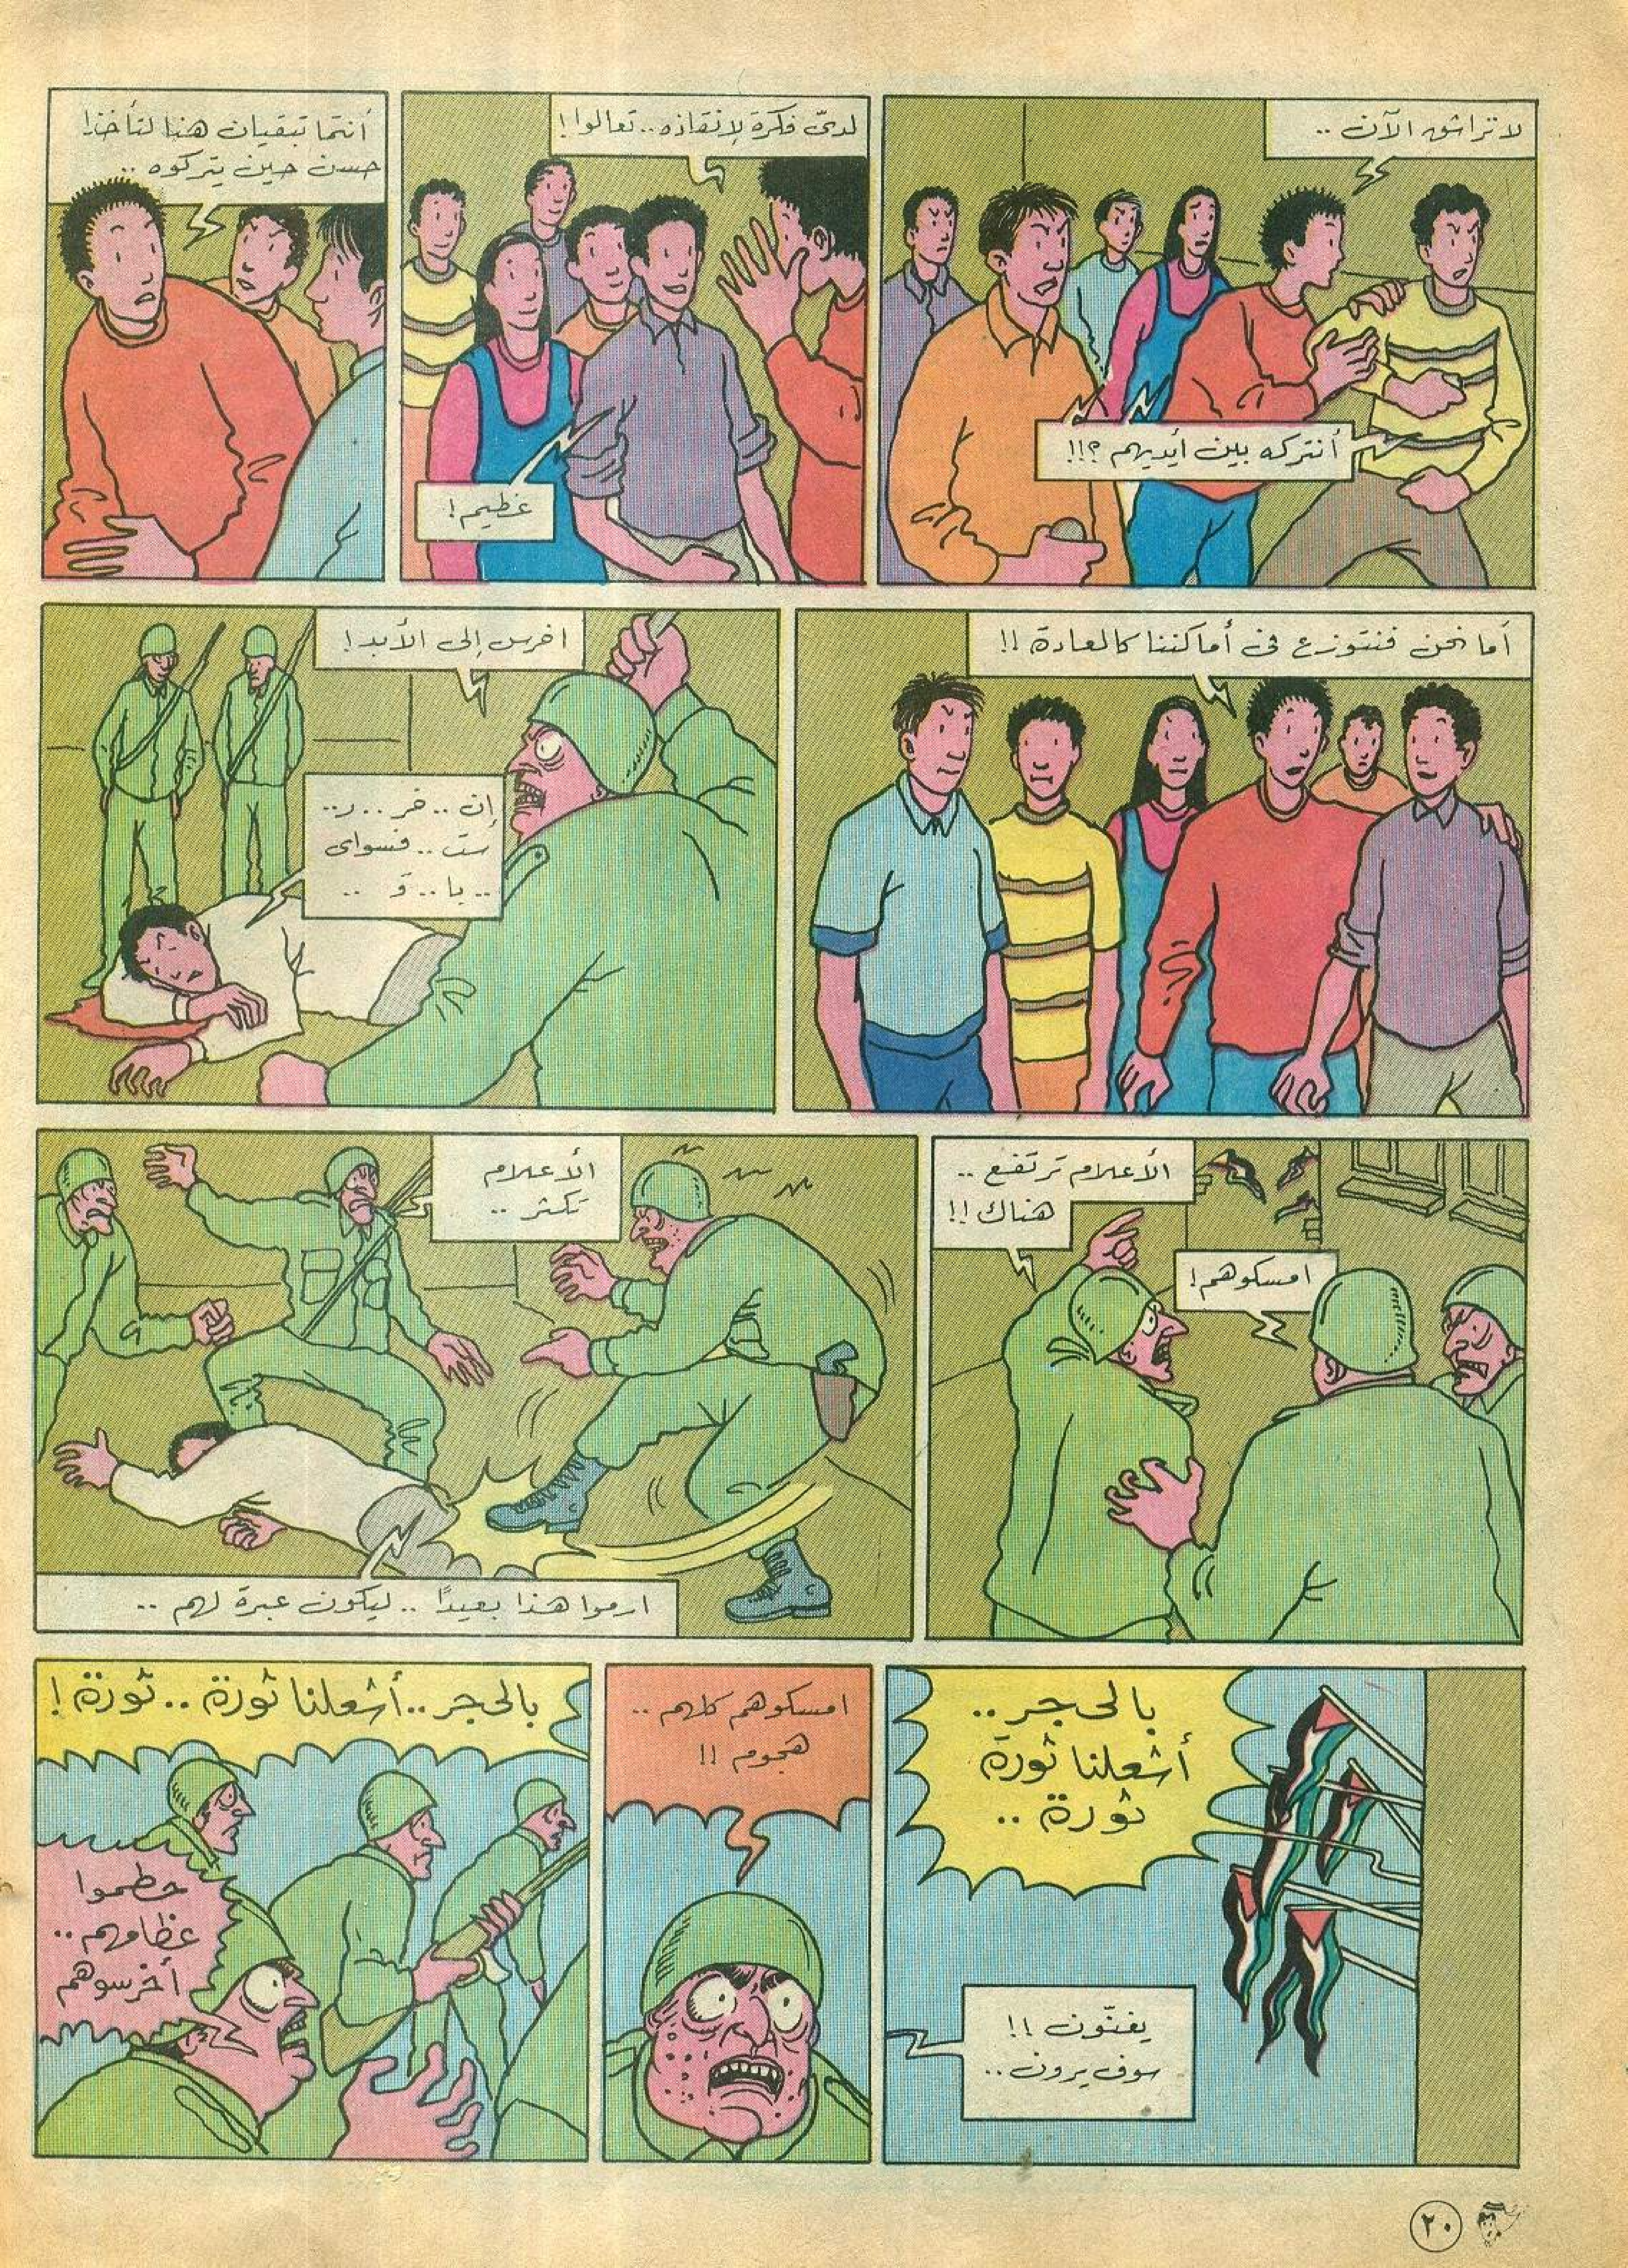 لا تراشق الآن ..
أنتركه بين أيديهم ؟!!
لديّ فكرة لإنقاذه .. تعالوا !
عظيم !
أنتما تبقيان هنا لتأخذا
حسن حين يتركوه ..
أما نحن فنتوزع في أماكننا كالعادة !!
اخرس إلى الأبد !
إن .. خر .. ر..
ست .. فسواي
.. يا .. و ..
الأعلام ترتفع ..
هناك !!
امسكوهم !
الأعلام
تكثر ..
ارموا هذا بعيدًا .. ليكون عبرة لهم ..
بالحجر ..
أشعلنا ثورة
ثورة ..
يغنّون !!
سوف يرون ..
امسكوهم كلهم ..
هجوم !!
بالحجر .. أشعلنا ثورة .. ثورة !
حطموا
عظامهم ..
أخرسوهم
٢٠